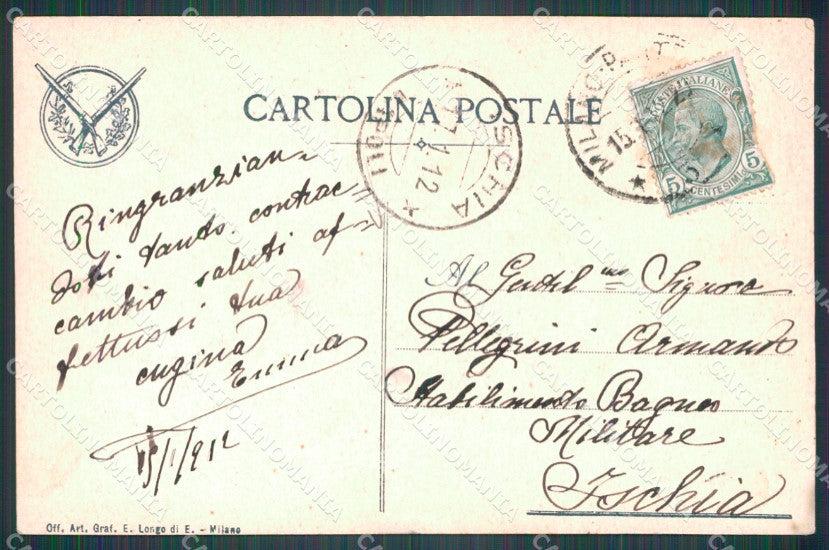 CARTOLINA POSTALE
Ringranzian-
doti tanto contrac
cambio saluti af-
fettussi tua
cugina
Emma
15/1/912
ISCHIA
17.1.12
NAPOLI
MILANO
15
POSTE ITALIANE
5 CENTESIMI 5
Al Gentil mo Signore
Pellegrini Armando
Stabilimento Bagno
Militare
Ischia
Off. Art. Graf. E. Longo di E. - Milano
CARTOLINOMANIA